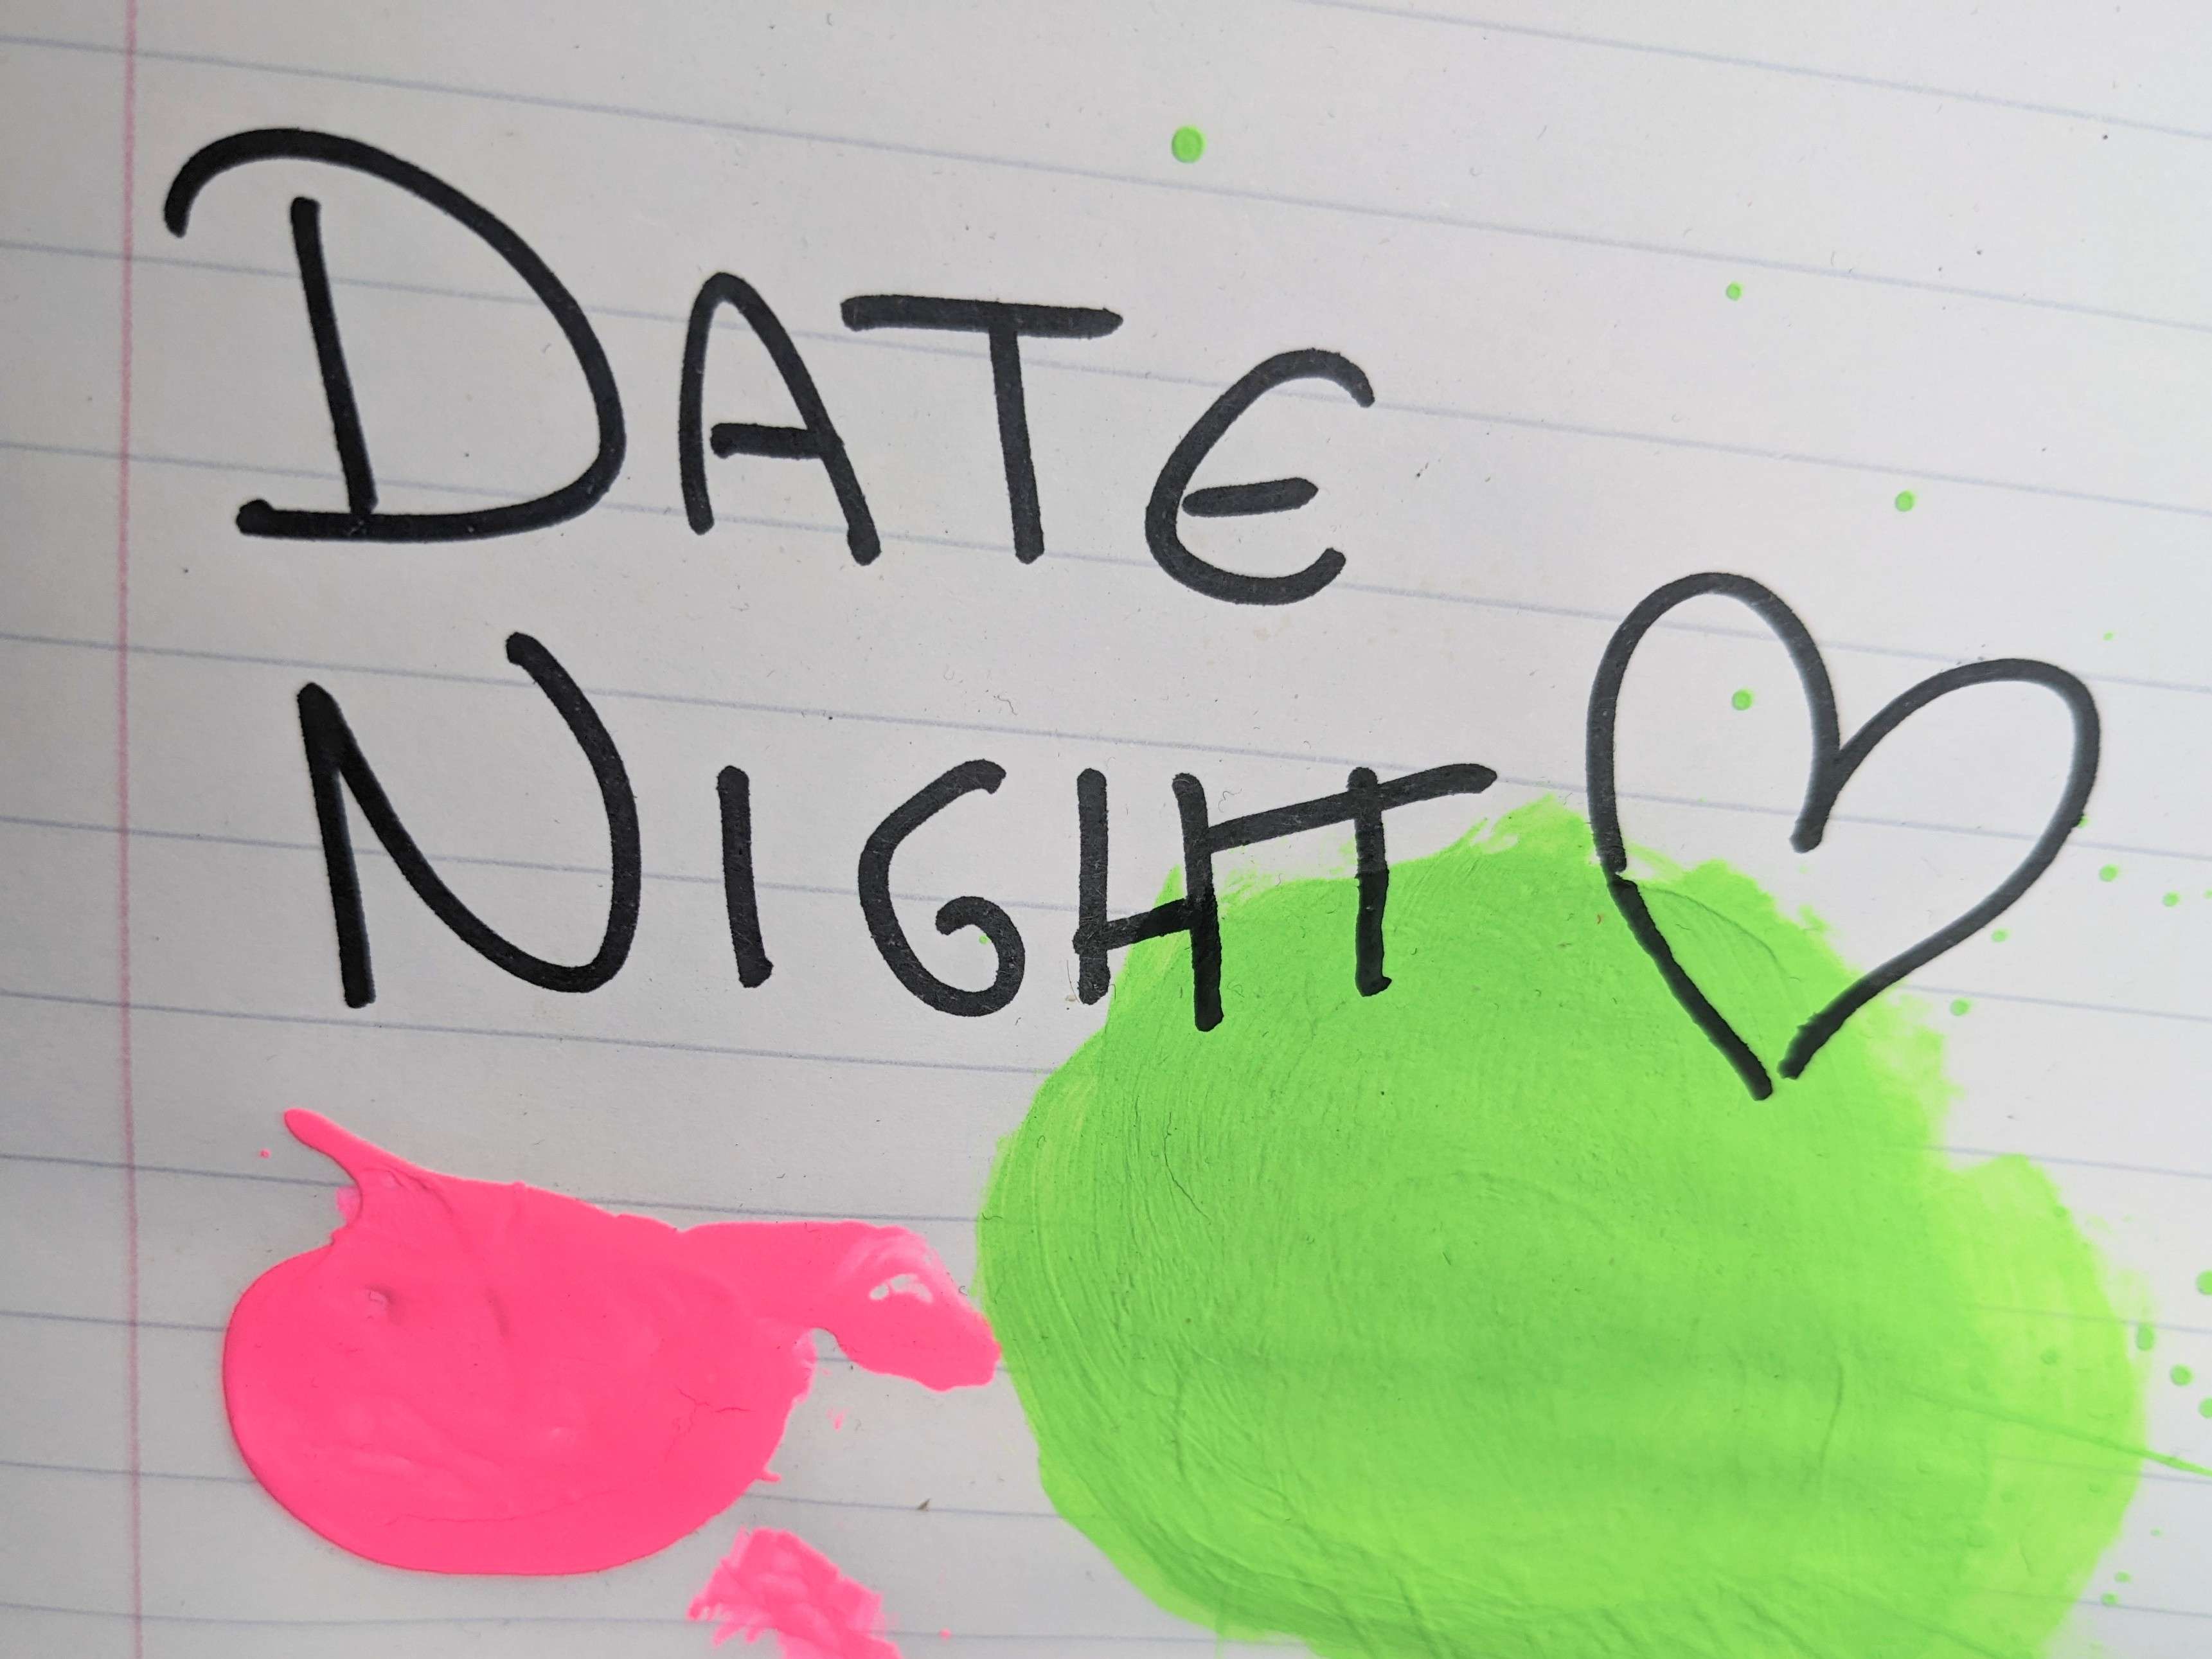 DATE
NIGHT ♡